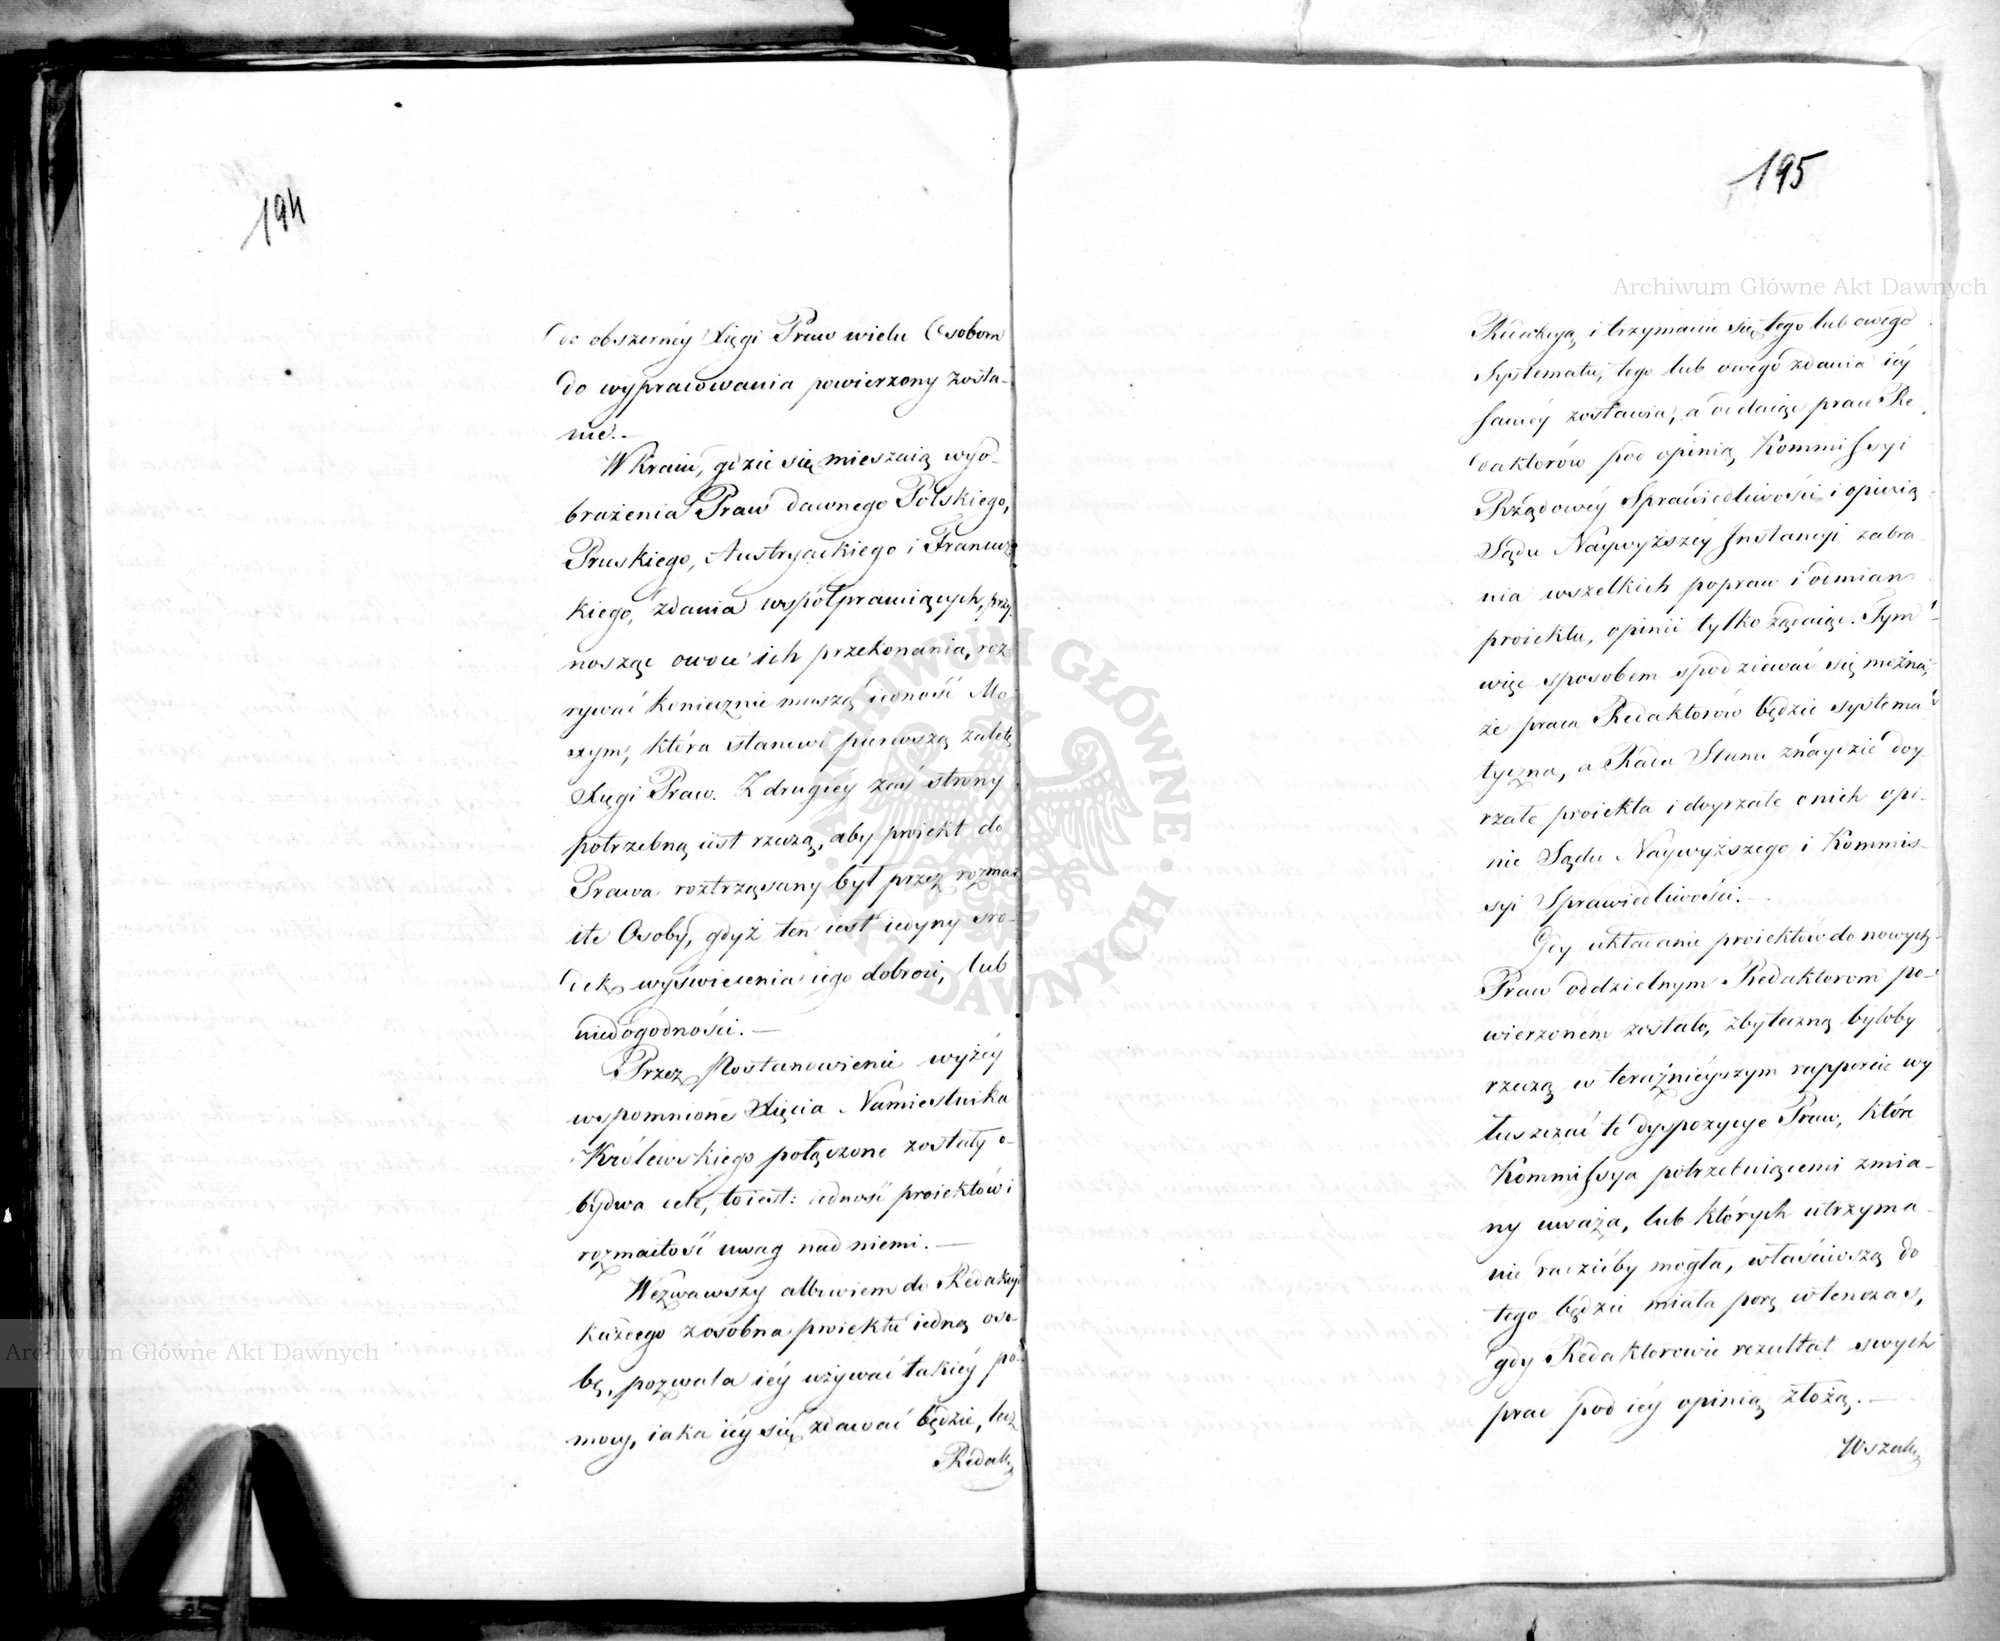 194
do obszernéy Xięgi Praw wielu Osobom
do wypracowania powierzony zosta-
nie.—
W Kraiu, gdzie się mieszaią wyo-
brażenia Praw dawnego Polskiego,
Pruskiego, Austryackiego i Francuz-
kiego, zdania wspołpracuiących, przy-
nosząc owoce ich przekonania, roz-
rywać koniecznie muszą iedność Ma-
xym, która stanowi pierwszą zaletę
Xięgi Praw. Z drugiey zaś strony
potrzebną iest rzeczą, aby proiekt do
Prawa roztrząsany był przez rozma-
ite Osoby, gdyż ten iest iedyny sro-
dek wyświecenia iego dobroci, lub
niedogodności.—
Przez Postanowienie wyżéy
wspomnione Xięcia Namiestnika
Królewskiego połączone zostały o-
bydwa cele, to iest: iedność proiektów i
rozmaitość uwag nad niemi.—
Wezwawszy albowiem do Redakcyi
każdego zosobna proiektu iedną oso-
bę, pozwala iéy używać takiéy po-
mocy, iaka iéy się zdawać będzie, lecz
Redak
195
Redakcyą i trzymanie się tego lub owego
Systematu, tego lub owego zdania iéy
saméy zostawia, a oddaiąc prace Re
daktorów pod opinią Kommissyi
Rządowéy Sprawiedliwości i opinią
Sądu Naywyższéy Instancyi zabra-
nia wszelkich popraw i odmian
proiektu, opinii tylko żądaiąc. Tym
więc sposobem spodziewać się można,
że praca Redaktorów będzie systema-
tyczna, a Rada Stanu znaydzie doy-
rzałe proiekta i doyrzałe o nich opi-
nie Sądu Naywyższego i Kommis-
syi Sprawiedliwości.—
Gdy układanie proiektów do nowych
Praw oddzielnym Redaktorom po-
wierzoném zostało, zbyteczną byłoby
rzeczą w teraźnieyszym rapporcie wy
łuszczać te dyspozycye Praw, które
Kommissya potrzebuiącemi zmia-
ny uważa, lub których utrzyma-
nie radzićby mogła, właściwszą do
tego będzie miała porę wtenczas,
gdy Redaktorowie rezultat swych
prac pod iéy opinią złożą.—
Wszak
Archiwum Główne Akt Dawnych
Archiwum Główne Akt Dawnych
ARCHIWUM GŁÓWNE AKT DAWNYCH